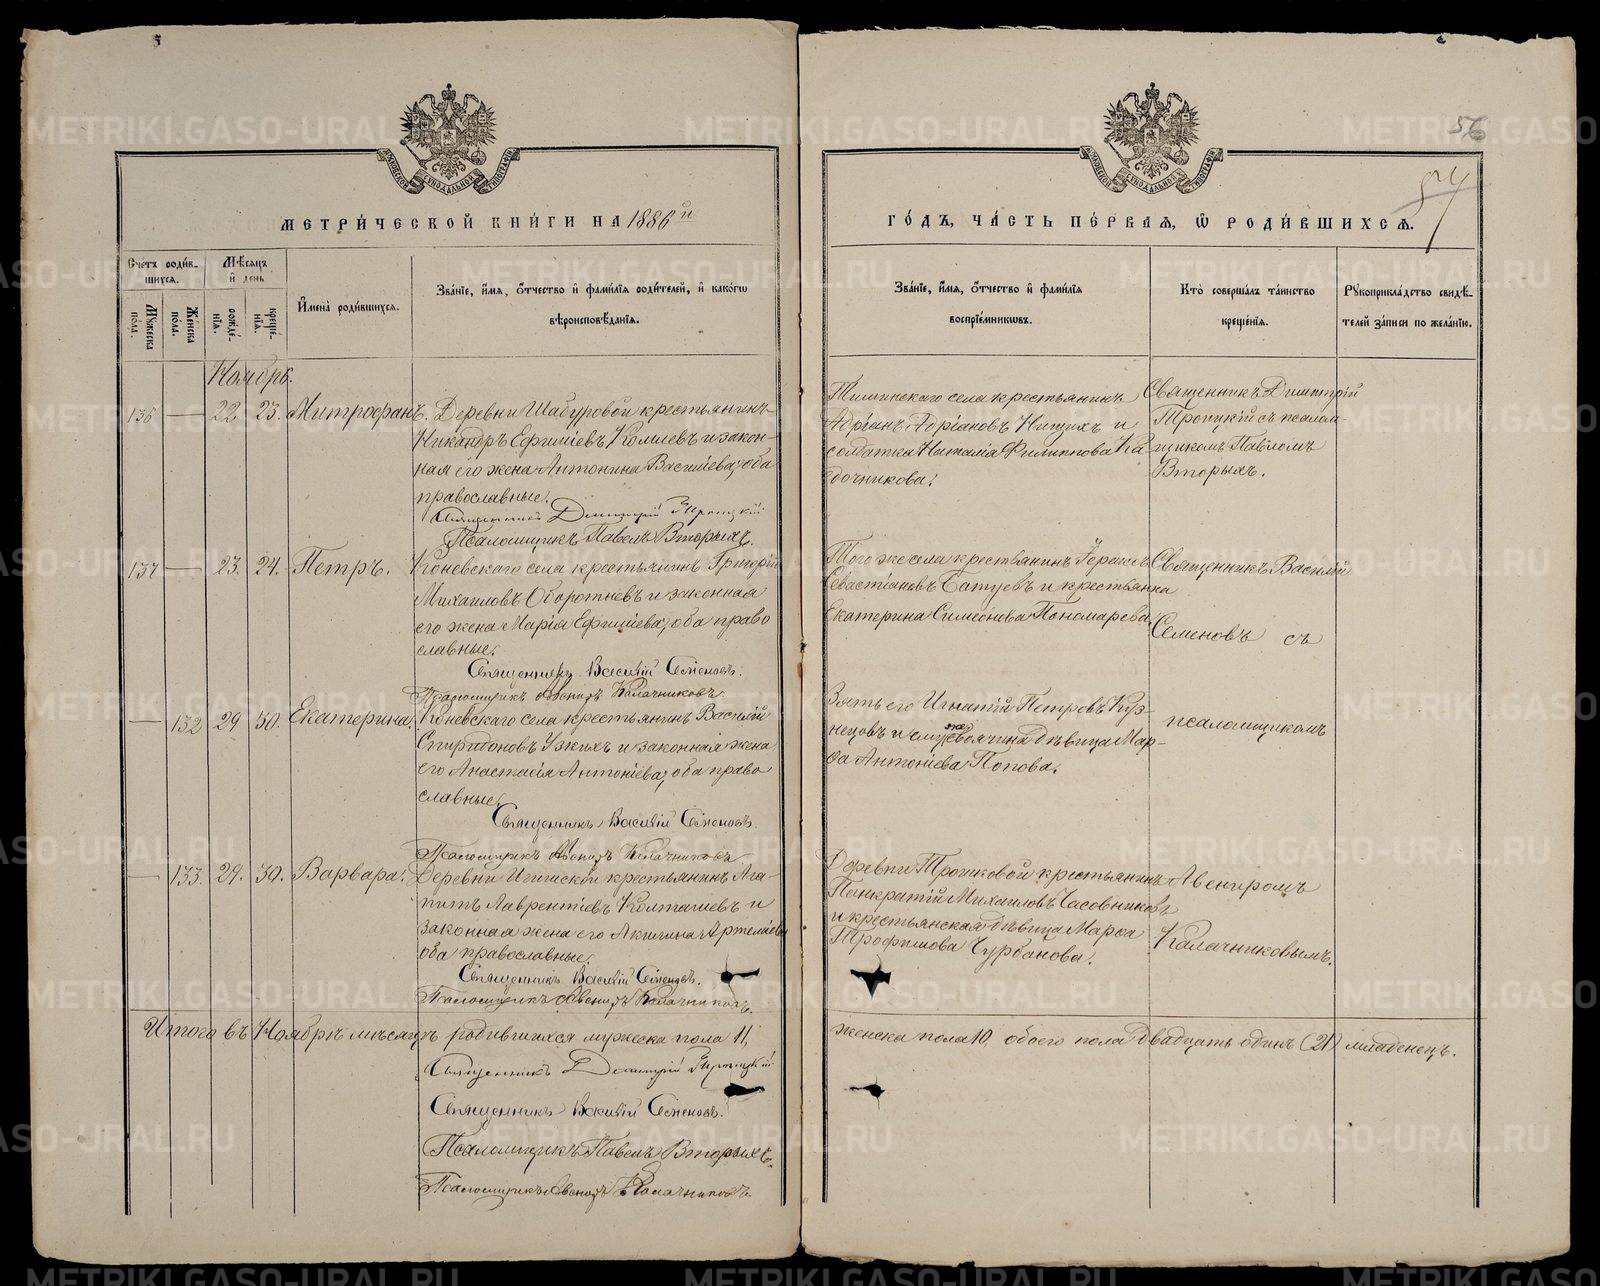 56
87
МЕТРИ́ЧЕСКОЙ КНИ́ГИ НА 1886 й
ГО́ДЪ, ЧА́СТЬ ПЕ́РВАЯ, Ѿ РОДИ́ВШИХСЯ.
Сче́тъ роди́в-
шихся.
Мѣ́сяцъ
и҆ день
Му́жеска по́ла.
Же́нска по́ла.
рожде́-
нїя.
креще́-
нїя.
И҆мена̀ роди́вшихся.
Зва́нїе, и҆́мя, о҆́тчество и҆ фами́лїя роди́телей, и҆ како́гѡ
вѣроисповѣ́данїя.
Зва́нїе, и҆́мя, о҆́тчество и҆ фами́лїя
воспрїе́мниковъ.
Кто̀ соверша́лъ та́инство
креще́нїя.
Рукоприкла́дство свидѣ́-
телей за́писи по жела́нїю.
Ноябрь.
136 — 22. 23. Митрофанъ.
Деревни Шабуровой крестьянинъ
Никандръ Ефиміевъ и закон-
ная его жена Антонина Василіева, оба
православные.
Священникъ Димитрій Троицкій
Псаломщикъ Павелъ Вторыхъ.
села крестьянинъ
Адріанъ Адріановъ Нищихъ и
солдатка Наталія Филиппова Ка-
дочникова.
Священникъ Димитрій
Троицкій съ псалом-
щикомъ Павломъ
Вторыхъ.
137 — 23. 24. Петръ.
Коневскаго села крестьянинъ Григорій
Михаиловъ Оборотневъ и законная
его жена Марія Ефиміева, оба право
славные.
Священникъ Василій Семеновъ.
Псаломщикъ Авениръ Калачниковъ.
Того же села крестьянинъ Герасимъ
Севастіановъ Батуевъ и крестьянка
Екатерина Симеонова Пономарева.
Священникъ Василій
Семеновъ съ
— 132 29 30. Екатерина.
Коневскаго села крестьянинъ Василій
Спиридоновъ Узкихъ и законная жена
его Анастасія Антоніева, оба право
славные.
Священникъ Василій Семеновъ.
Псаломщикъ Авениръ Калачниковъ.
Зять его Игнатій Петровъ Куз-
нецовъ и ему же своячина дѣвица Мар-
фа Антоніева Попова.
псаломщикомъ
— 133. 29. 30. Варвара.
Деревни крестьянинъ Ага-
питъ Лаврентіевъ Колташевъ и
законная жена его Акилина Артеміева
оба православные.
Священникъ Василій Семеновъ.
Псаломщикъ Авениръ Калачниковъ.
Деревни крестьянинъ
Панкратій Михаиловъ Часовниковъ
и крестьянская дѣвица Марфа
Трофимова Чурбанова.
Авениромъ
Калачниковымъ.
Итого въ Ноябрѣ мѣсяцѣ родившихся мужеска пола 11,
женска пола 10, обоего пола двадцать одинъ (21) младенецъ.
Священникъ Димитрій Троицкій
Священникъ Василій Семеновъ.
Псаломщикъ Павелъ Вторыхъ.
Псаломщикъ Авениръ Калачниковъ.